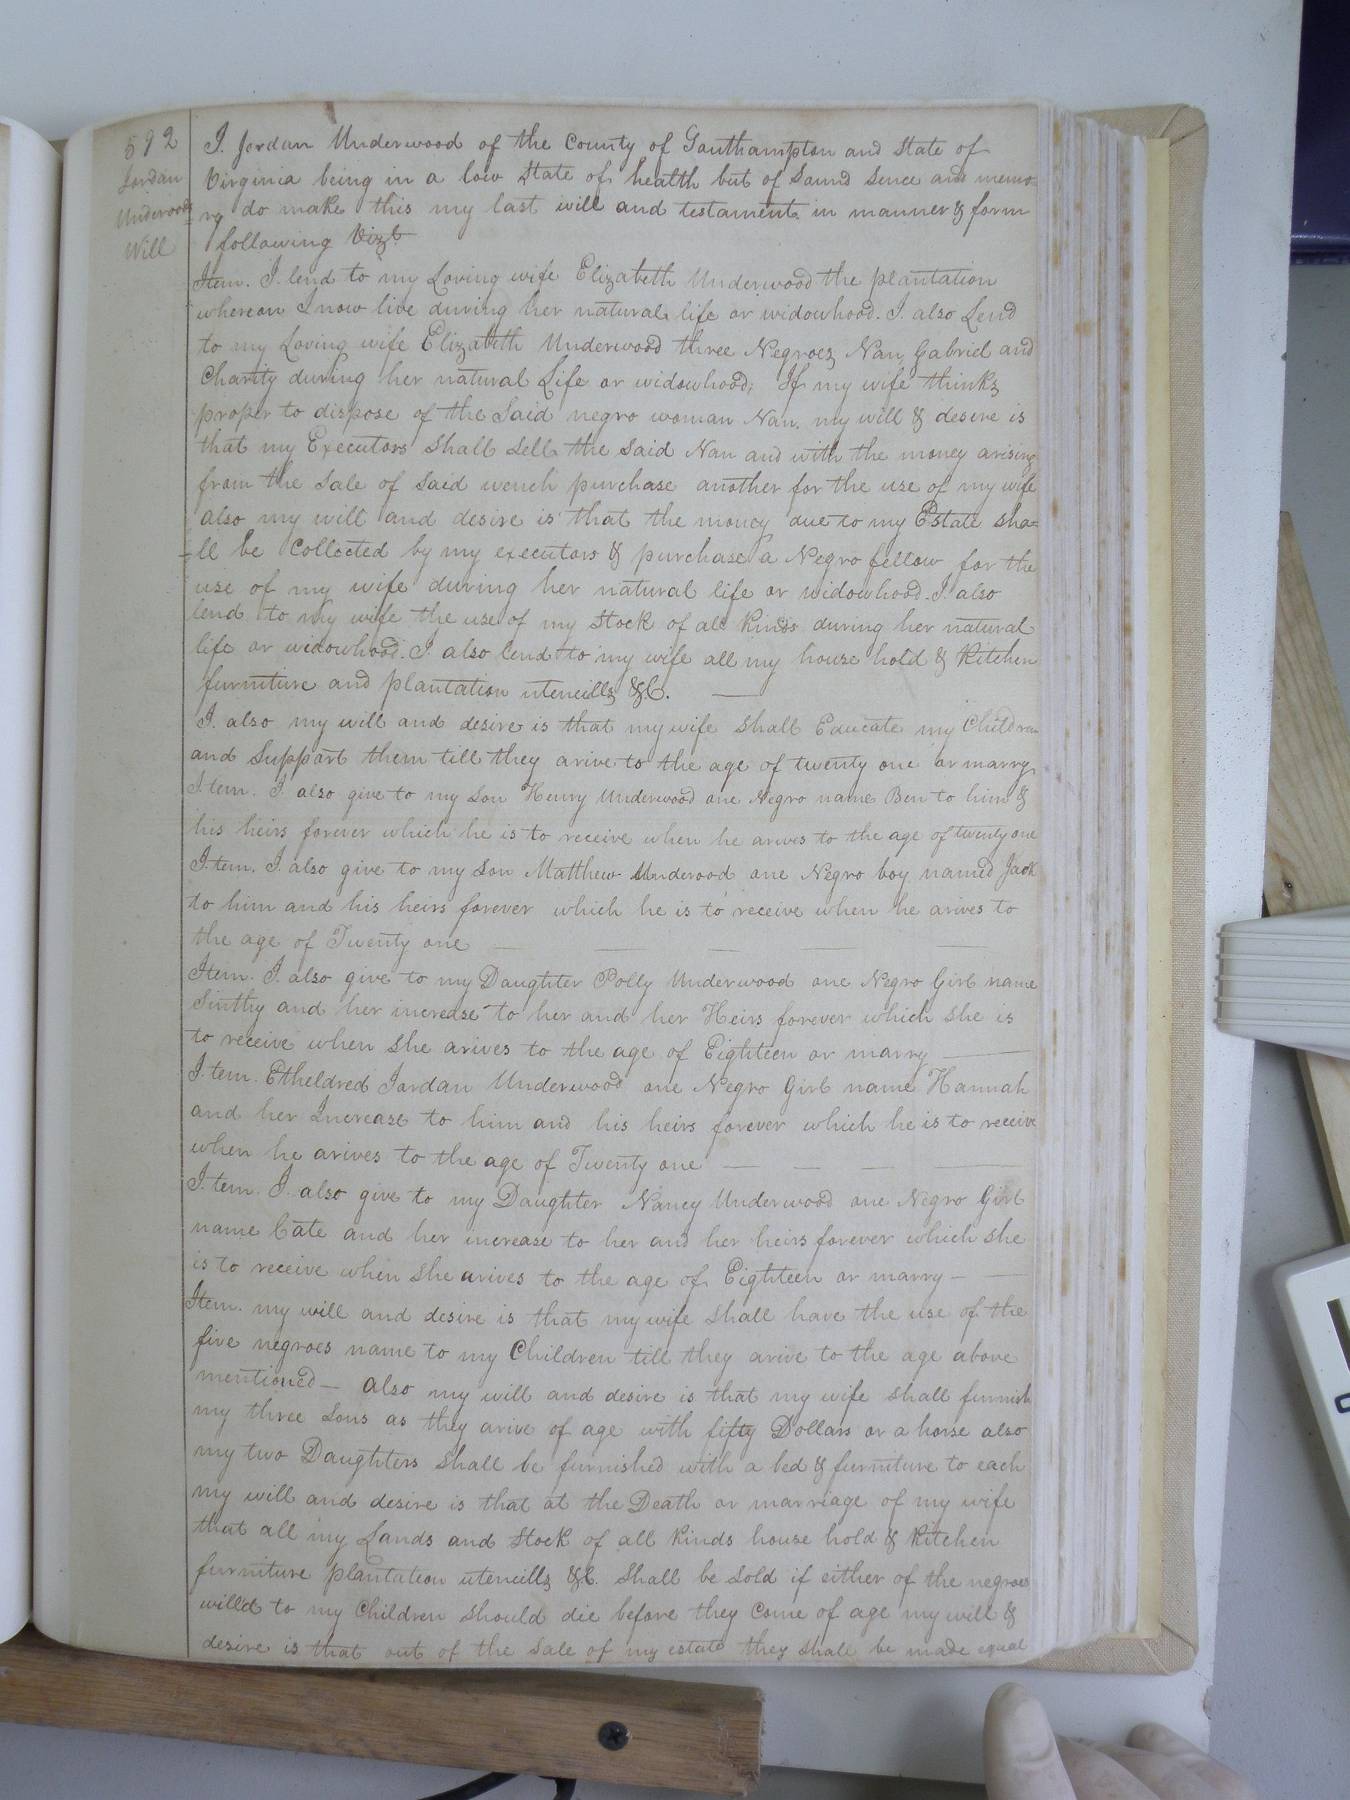 592
Jordan
Underwoods
Will
I. Jordan Underwood of the County of Southampton and State of
Virginia being in a low State of health but of Sound Sence and memo-
ry do make this my last will and testament in manner & form
following Vizt
Item. I lend to my Loving wife Elizabeth Underwood the plantation
whereon I now live during her natural life or widowhood. I also Lend
to my Loving wife Elizabeth Underwood three Negroes Nan, Gabriel and
Charity during her natural Life or widowhood; If my wife thinks
proper to dispose of the Said negro woman Nan, my will & desire is
that my Executors Shall Sell the Said Nan and with the money arising
from the Sale of Said wench purchase another for the use of my wife
also my will and desire is that the money due to my Estate sha=
=ll be Collected by my executors & purchase a Negro fellow for the
use of my wife during her natural life or widowhood. I also
lend to my wife the use of my Stock of all kinds during her natural
life or widowhood. I also lend to my wife all my house hold & Kitchen
furniture and plantation utencills &C.
I. also my will and desire is that my wife shall Educate my Children
and Support them till they arive to the age of twenty one or marry
Item. I also give to my Son Henry Underwood one Negro name Ben to him &
his heirs forever which he is to receive when he arives to the age of twenty one
Item. I also give to my Son Matthew Underood one Negro boy named Jack
to him and his heirs forever which he is to receive when he arives to
the age of Twenty one
Item. I also give to my Daughter Polly Underwood one Negro Girl name
Sinthy and her increase to her and her Heirs forever which She is
to receive when she arives to the age of Eighteen or marry
Item. Etheldred Jordan Underwood one Negro Girl name Hannah
and her Increase to him and his heirs forever which he is to receive
when he arives to the age of Twenty one
Item. I also give to my Daughter Nancy Underwood one Negro Girl
name Cate and her increase to her and her heirs forever which she
is to receive when she arives to the age of Eighteen or marry
Item. my will and desire is that my wife shall have the use of the
five negroes name to my Children till they arive to the age above
mentioned — also my will and desire is that my wife shall furnish
my three Sons as they arive of age with fifty Dollars or a horse also
my two Daughters Shall be furnished with a bed & furniture to each
my will and desire is that at the Death or marriage of my wife
that all my Lands and Stock of all kinds house hold & Kitchen
furniture plantation utencills &C. Shall be Sold if either of the negroes
willd to my Children should die before they Come of age my will &
desire is that out of the Sale of my estate they Shall be made equal